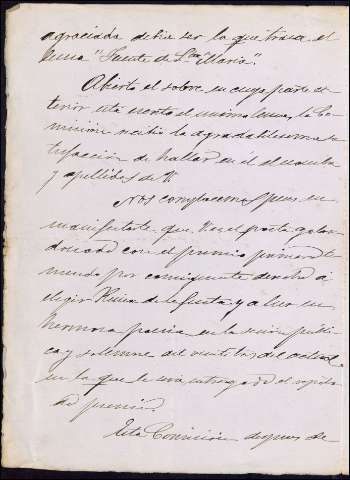 agraciada debia ser la que traia el
lema "Fuente de Sta. Maria".
Abierto el sobre, en cuya parte es-
terior está escrito el mismo lema, la Co-
mision recibió la agradabilisima sa-
tisfaccion de hallar en él el nombre
y apellidos de V.
Nos complacemos pues en
manifestarle, que V. es el poeta galar-
donado con el premio primero te-
niendo por consiguiente derecho á
elegir Reina de la fiesta y a leer su
hermosa poesia en la sesion públi-
ca y solemne del veintidos del actual
en la que le será entregado el repeti-
do premio.
Esta Comision despues de